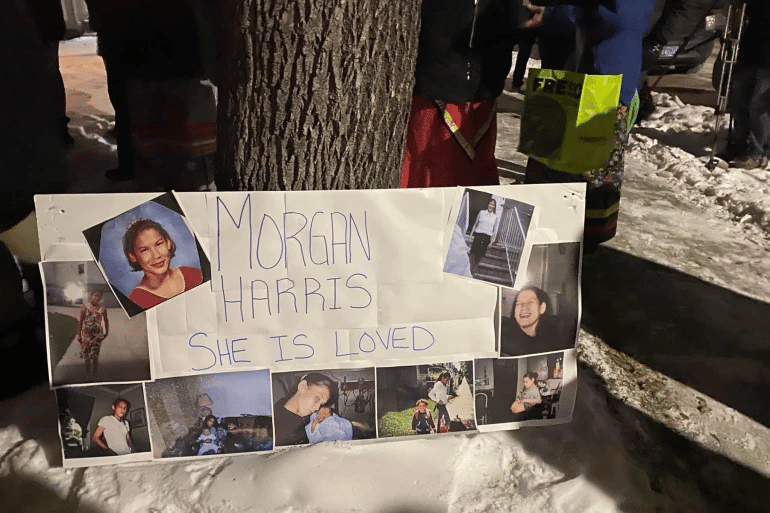 MORGAN
HARRIS
SHE IS LOVED